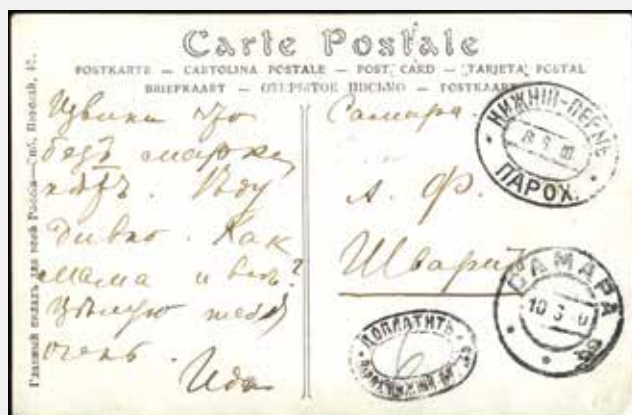 Carte Postale
POSTKARTE — CARTOLINA POSTALE — POST CARD — TARJETA POSTAL
BRIEFKAART — ОТКРЫТОЕ ПИСЬМО — POSTKAART
Главный складъ для всей Россіи—Спб. Невскій,
что
безъ марки,
нѣтъ. Ѣду
дивно. Как
мама и все?
Цѣлую тебя
очень.
Ида
Самара.
А. Ф.
Шварц
НИЖНІЙ-ПЕРМЬ
ПАРОХ.
САМАРА
ДОПЛАТИТЬ
6